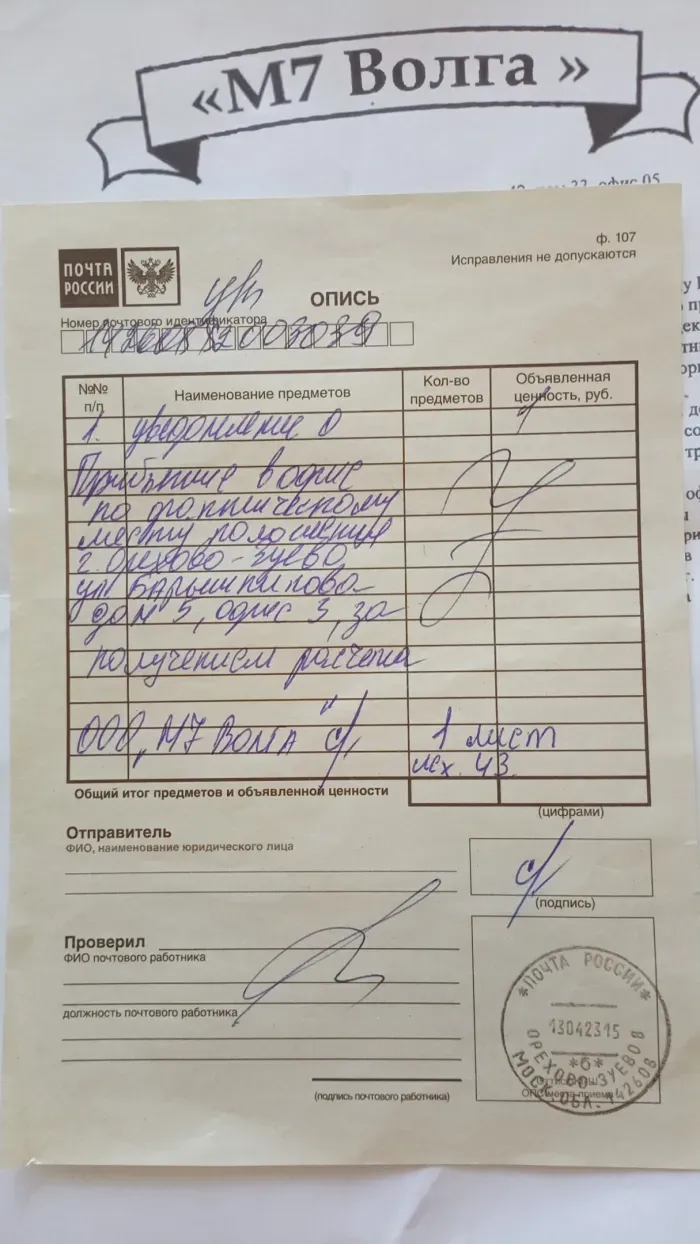 «М7 Волга»
офис 05
ф. 107
Исправления не допускаются
ПОЧТА РОССИИ
ОПИСЬ
Номер почтового идентификатора
№№ п/п
Наименование предметов
Кол-во предметов
Объявленная ценность, руб.
1. уведомление о
Прибытие в офис
по фактическому
месту положения
г. Орехово-Зуево
ул
дом 5, офис 3, за
получением расчета
ООО „М7 Волга"
1 лист
исх. 43.
Общий итог предметов и объявленной ценности
(цифрами)
Отправитель
ФИО, наименование юридического лица
(подпись)
Проверил
ФИО почтового работника
должность почтового работника
(подпись почтового работника)
*ПОЧТА РОССИИ*
13042315
*б*
ОРЕХОВО-ЗУЕВО8
МОСК.ОБЛ.142608